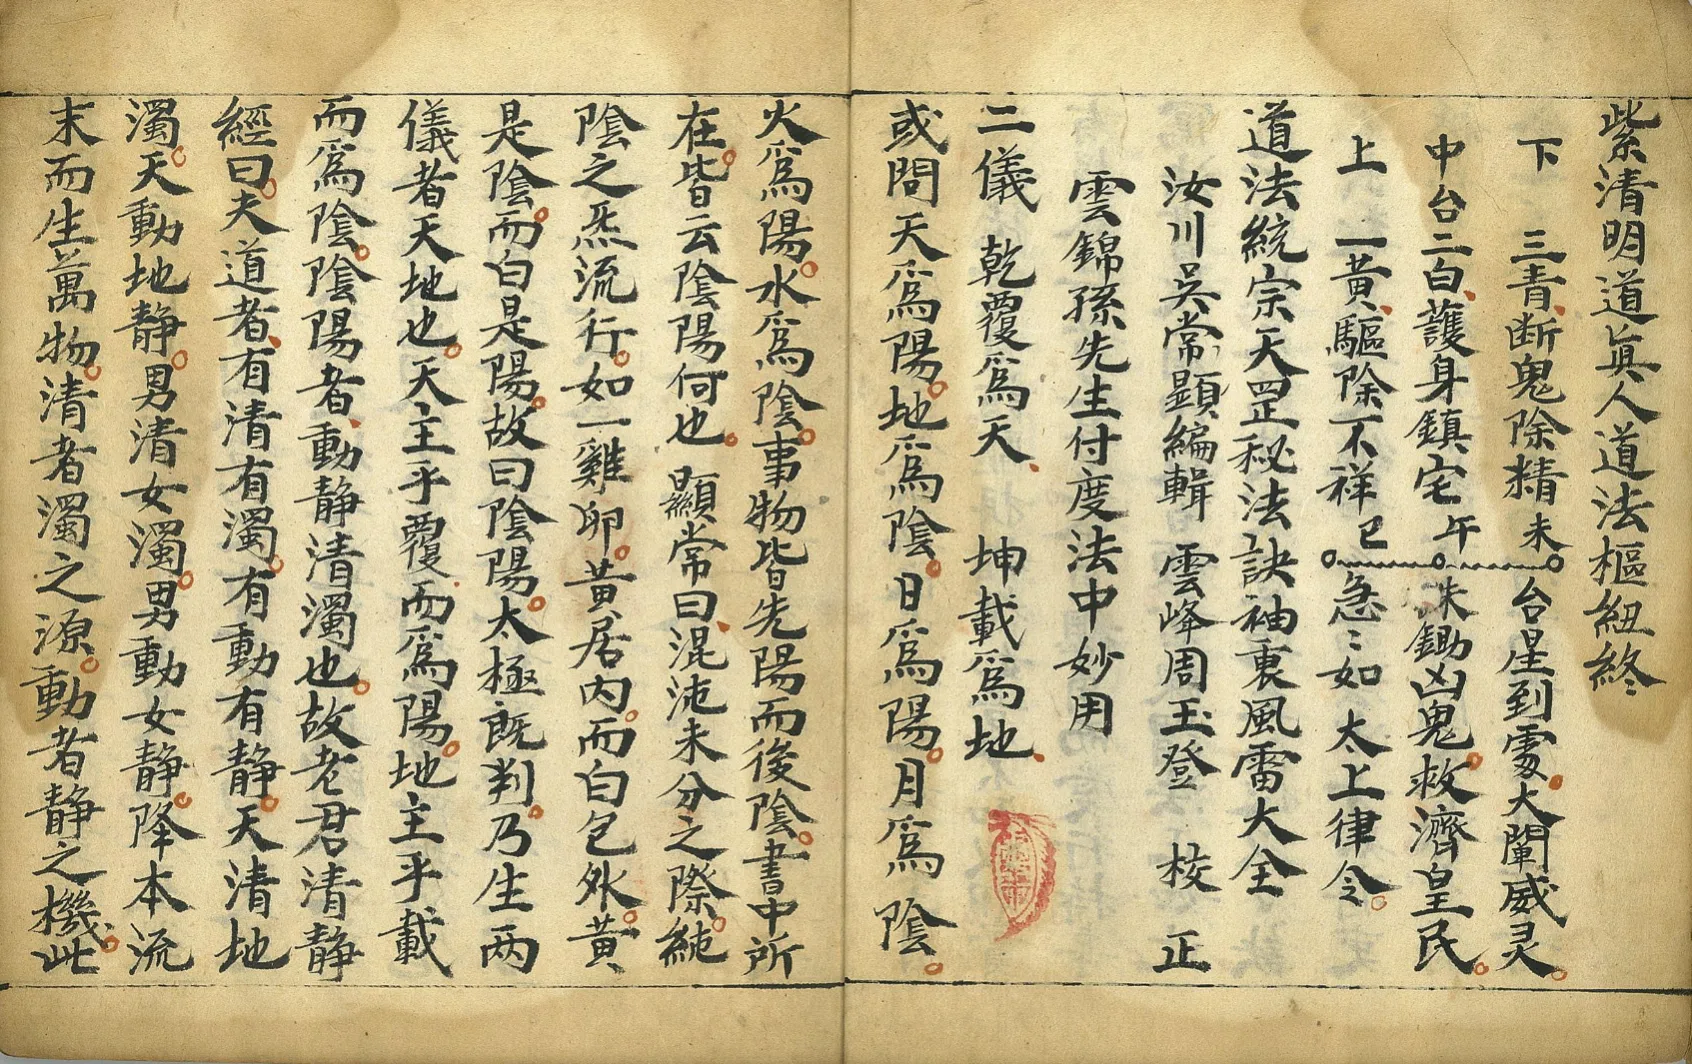 紫清明道眞人道法樞紐終
下 三青断鬼除精未 台星到處大闡威灵
中台二白護身鎮宅午 朱鋤凶鬼救濟皇民
上 一黄驅除不祥巳 急〻如 太上律令
道法統宗天罡秘法訣袖裏風雷大全
汝川吳常顕編輯 雲峰周玉登 校 正
雲錦孫先生付度法中妙用
二儀 乾覆爲天 坤載爲地
或問天爲陽地爲陰日爲陽月爲陰
火爲陽水爲陰事物皆先陽而後陰書中所
在皆云陰陽何也 顯常曰混沌未分之際純
陰之炁流行如一雞卵黄居内而白包外黄
是陰而白是陽故曰陰陽太極既判乃生两
儀者天地也天主乎覆而爲陽地主乎載
而爲陰陰陽者動静清濁也故老君清静
經曰夫道者有清有濁有動有静天清地
濁天動地静男清女濁男動女静降本流
末而生萬物清者濁之源動者静之機此